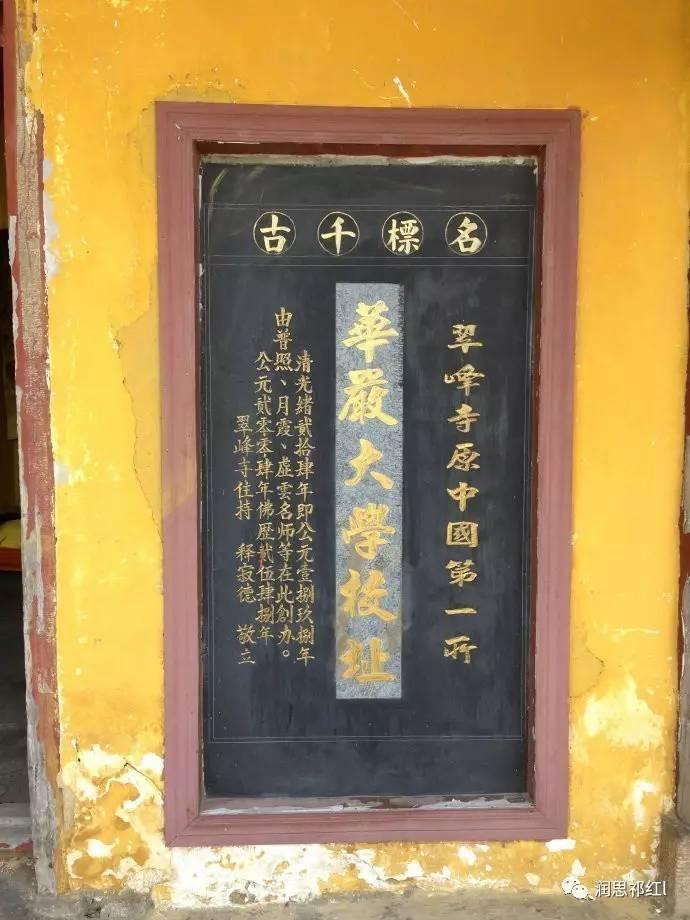 名標千古
翠峰寺原中國第一所
華嚴大學校址
清光緒貳拾肆年即公元壹捌玖捌年
由普照、月霞、虛雲名师等在此創办。
公元貳零零肆年佛歷貳伍肆捌年
翠峰寺住持 释寂德 敬立
润思祁红l